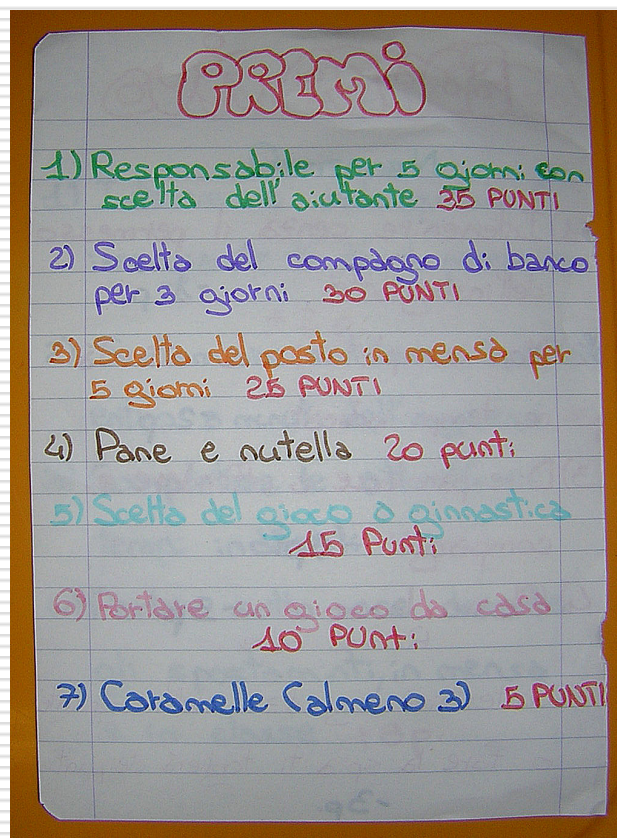 PREMi
1) Responsabile per 5 giorni con
scelta dell'aiutante 35 PUNTI
2) Scelta del compagno di banco
per 3 giorni 30 PUNTI
3) Scelta del posto in mensa per
5 giorni 25 PUNTI
4) Pane e nutella 20 punti
5) Scelta del gioco a ginnastica
15 Punti
6) Portare un gioco da casa
10 PUnti
7) Caramelle (almeno 3) 5 PUNTI